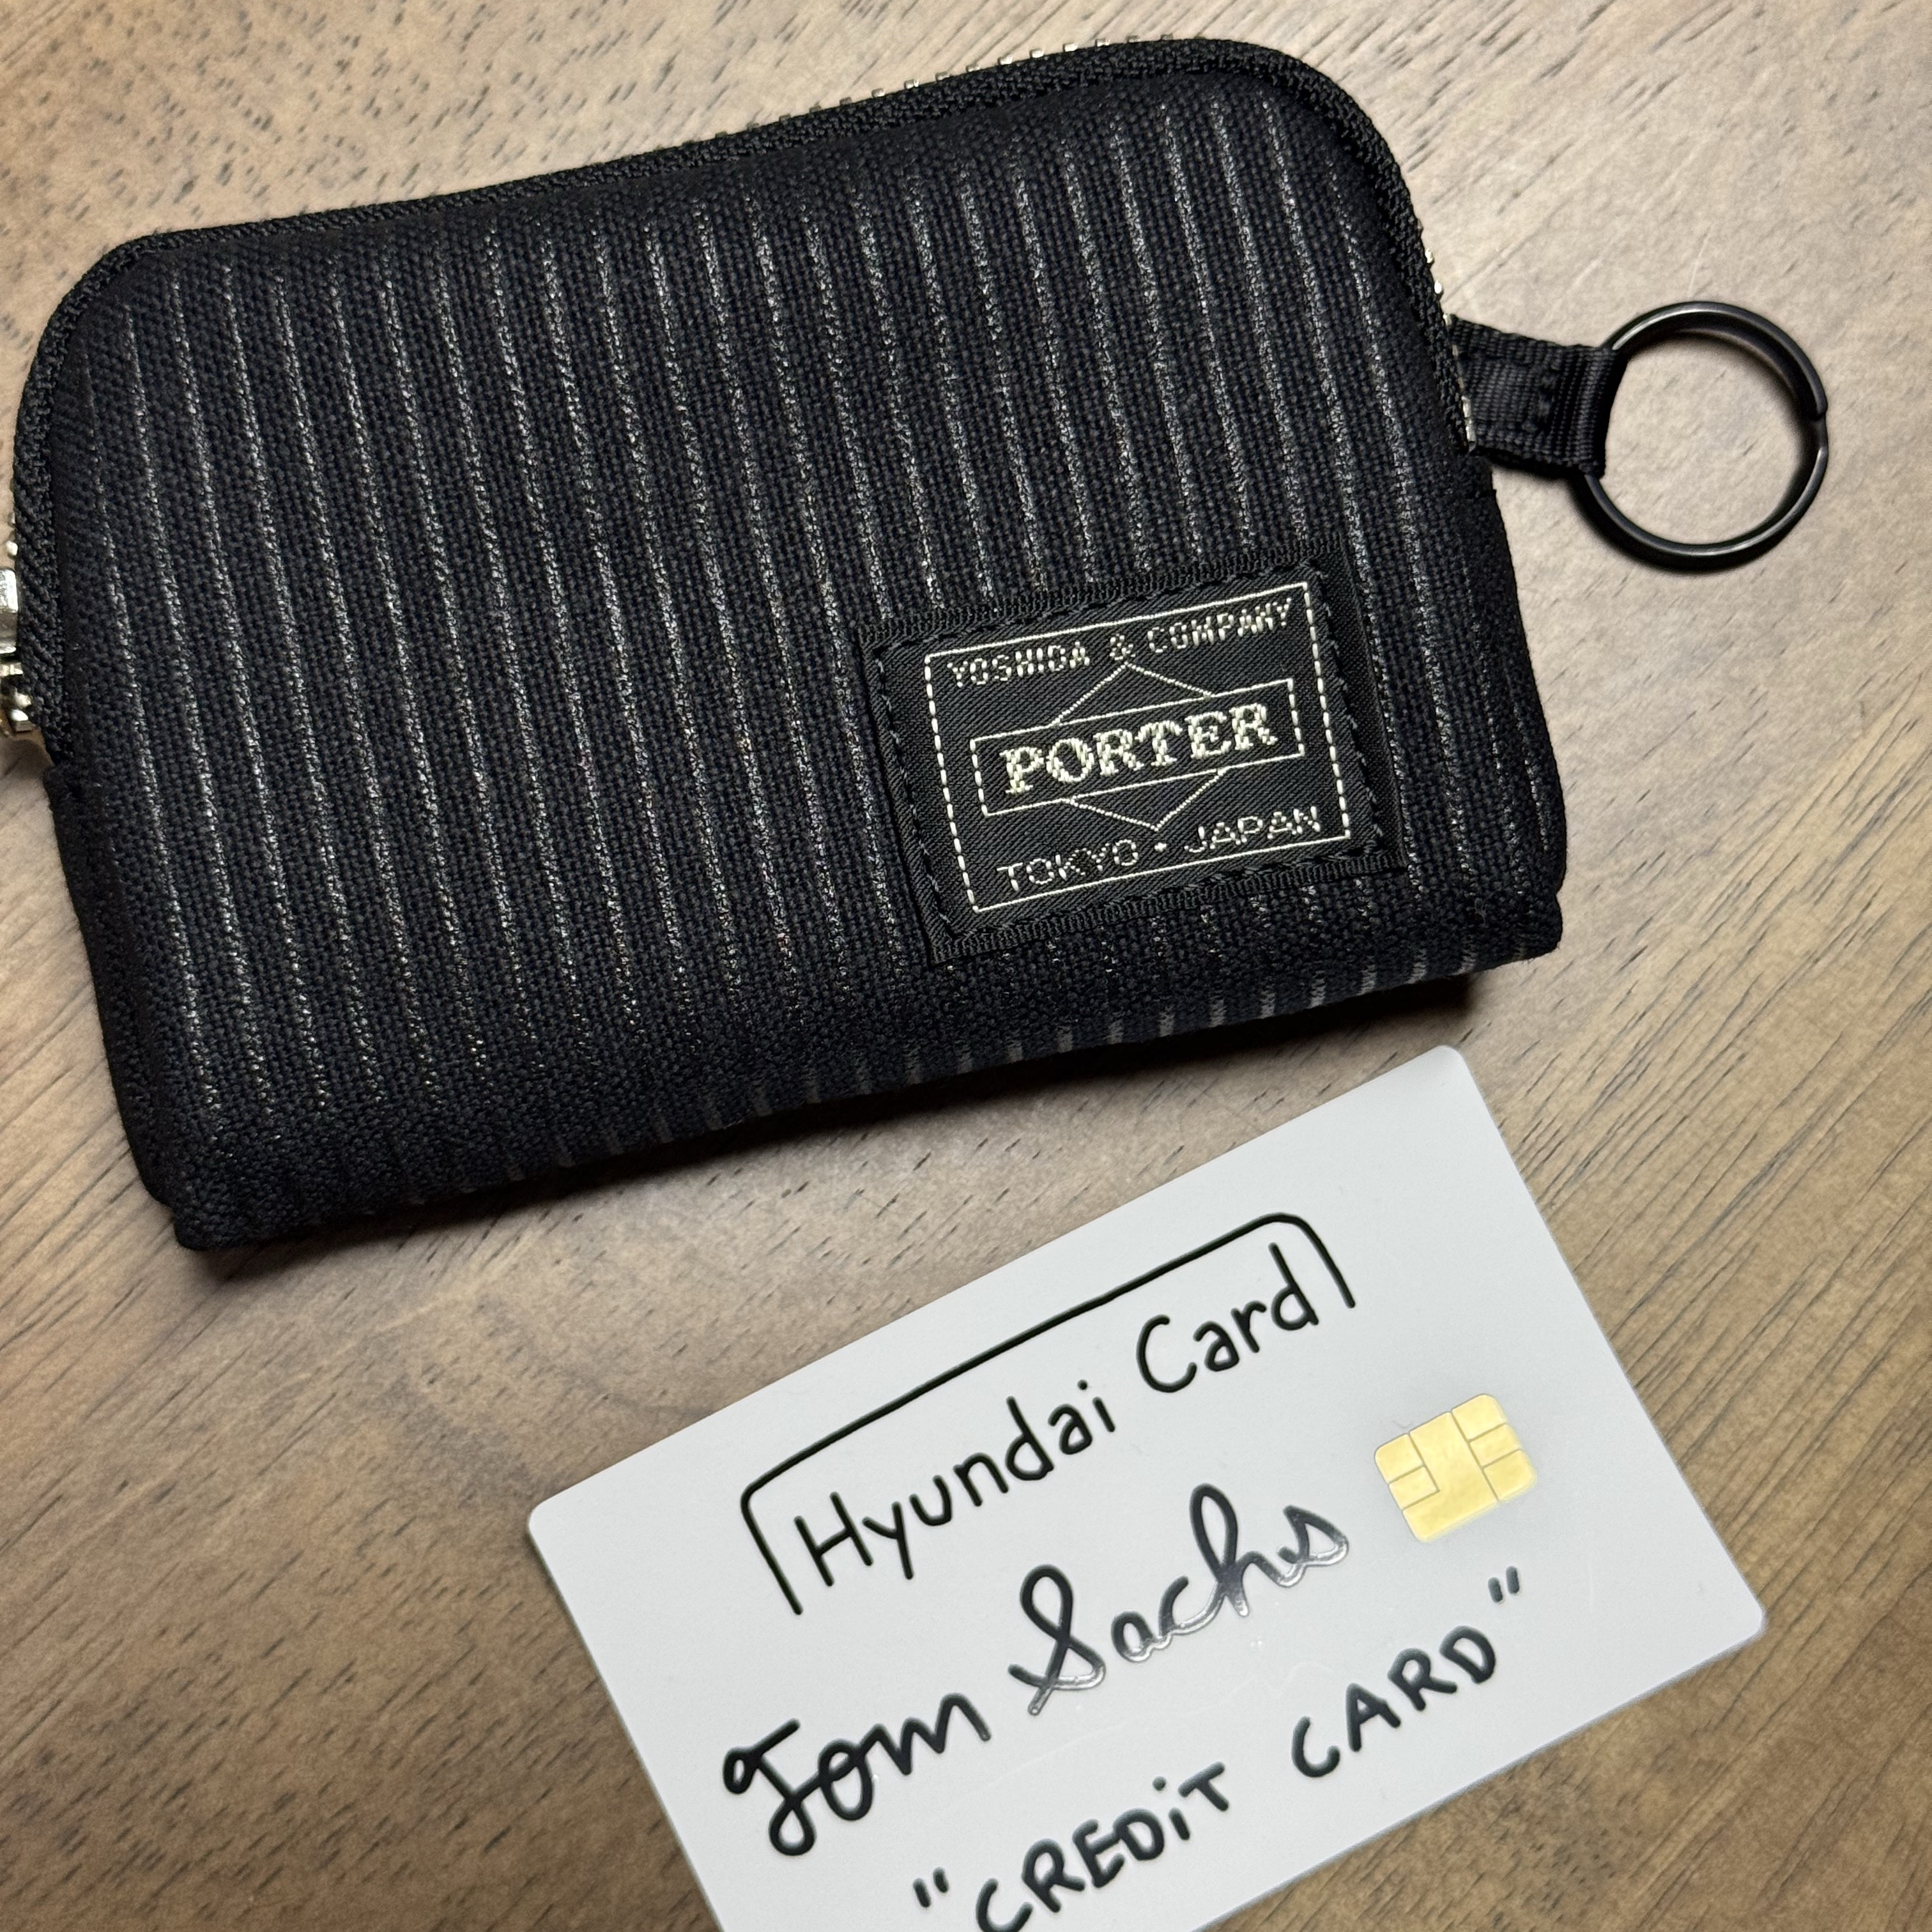 YOSHIDA & COMPANY
PORTER
TOKYO • JAPAN
Hyundai Card
Tom Sachs
"CREDiT CARD"